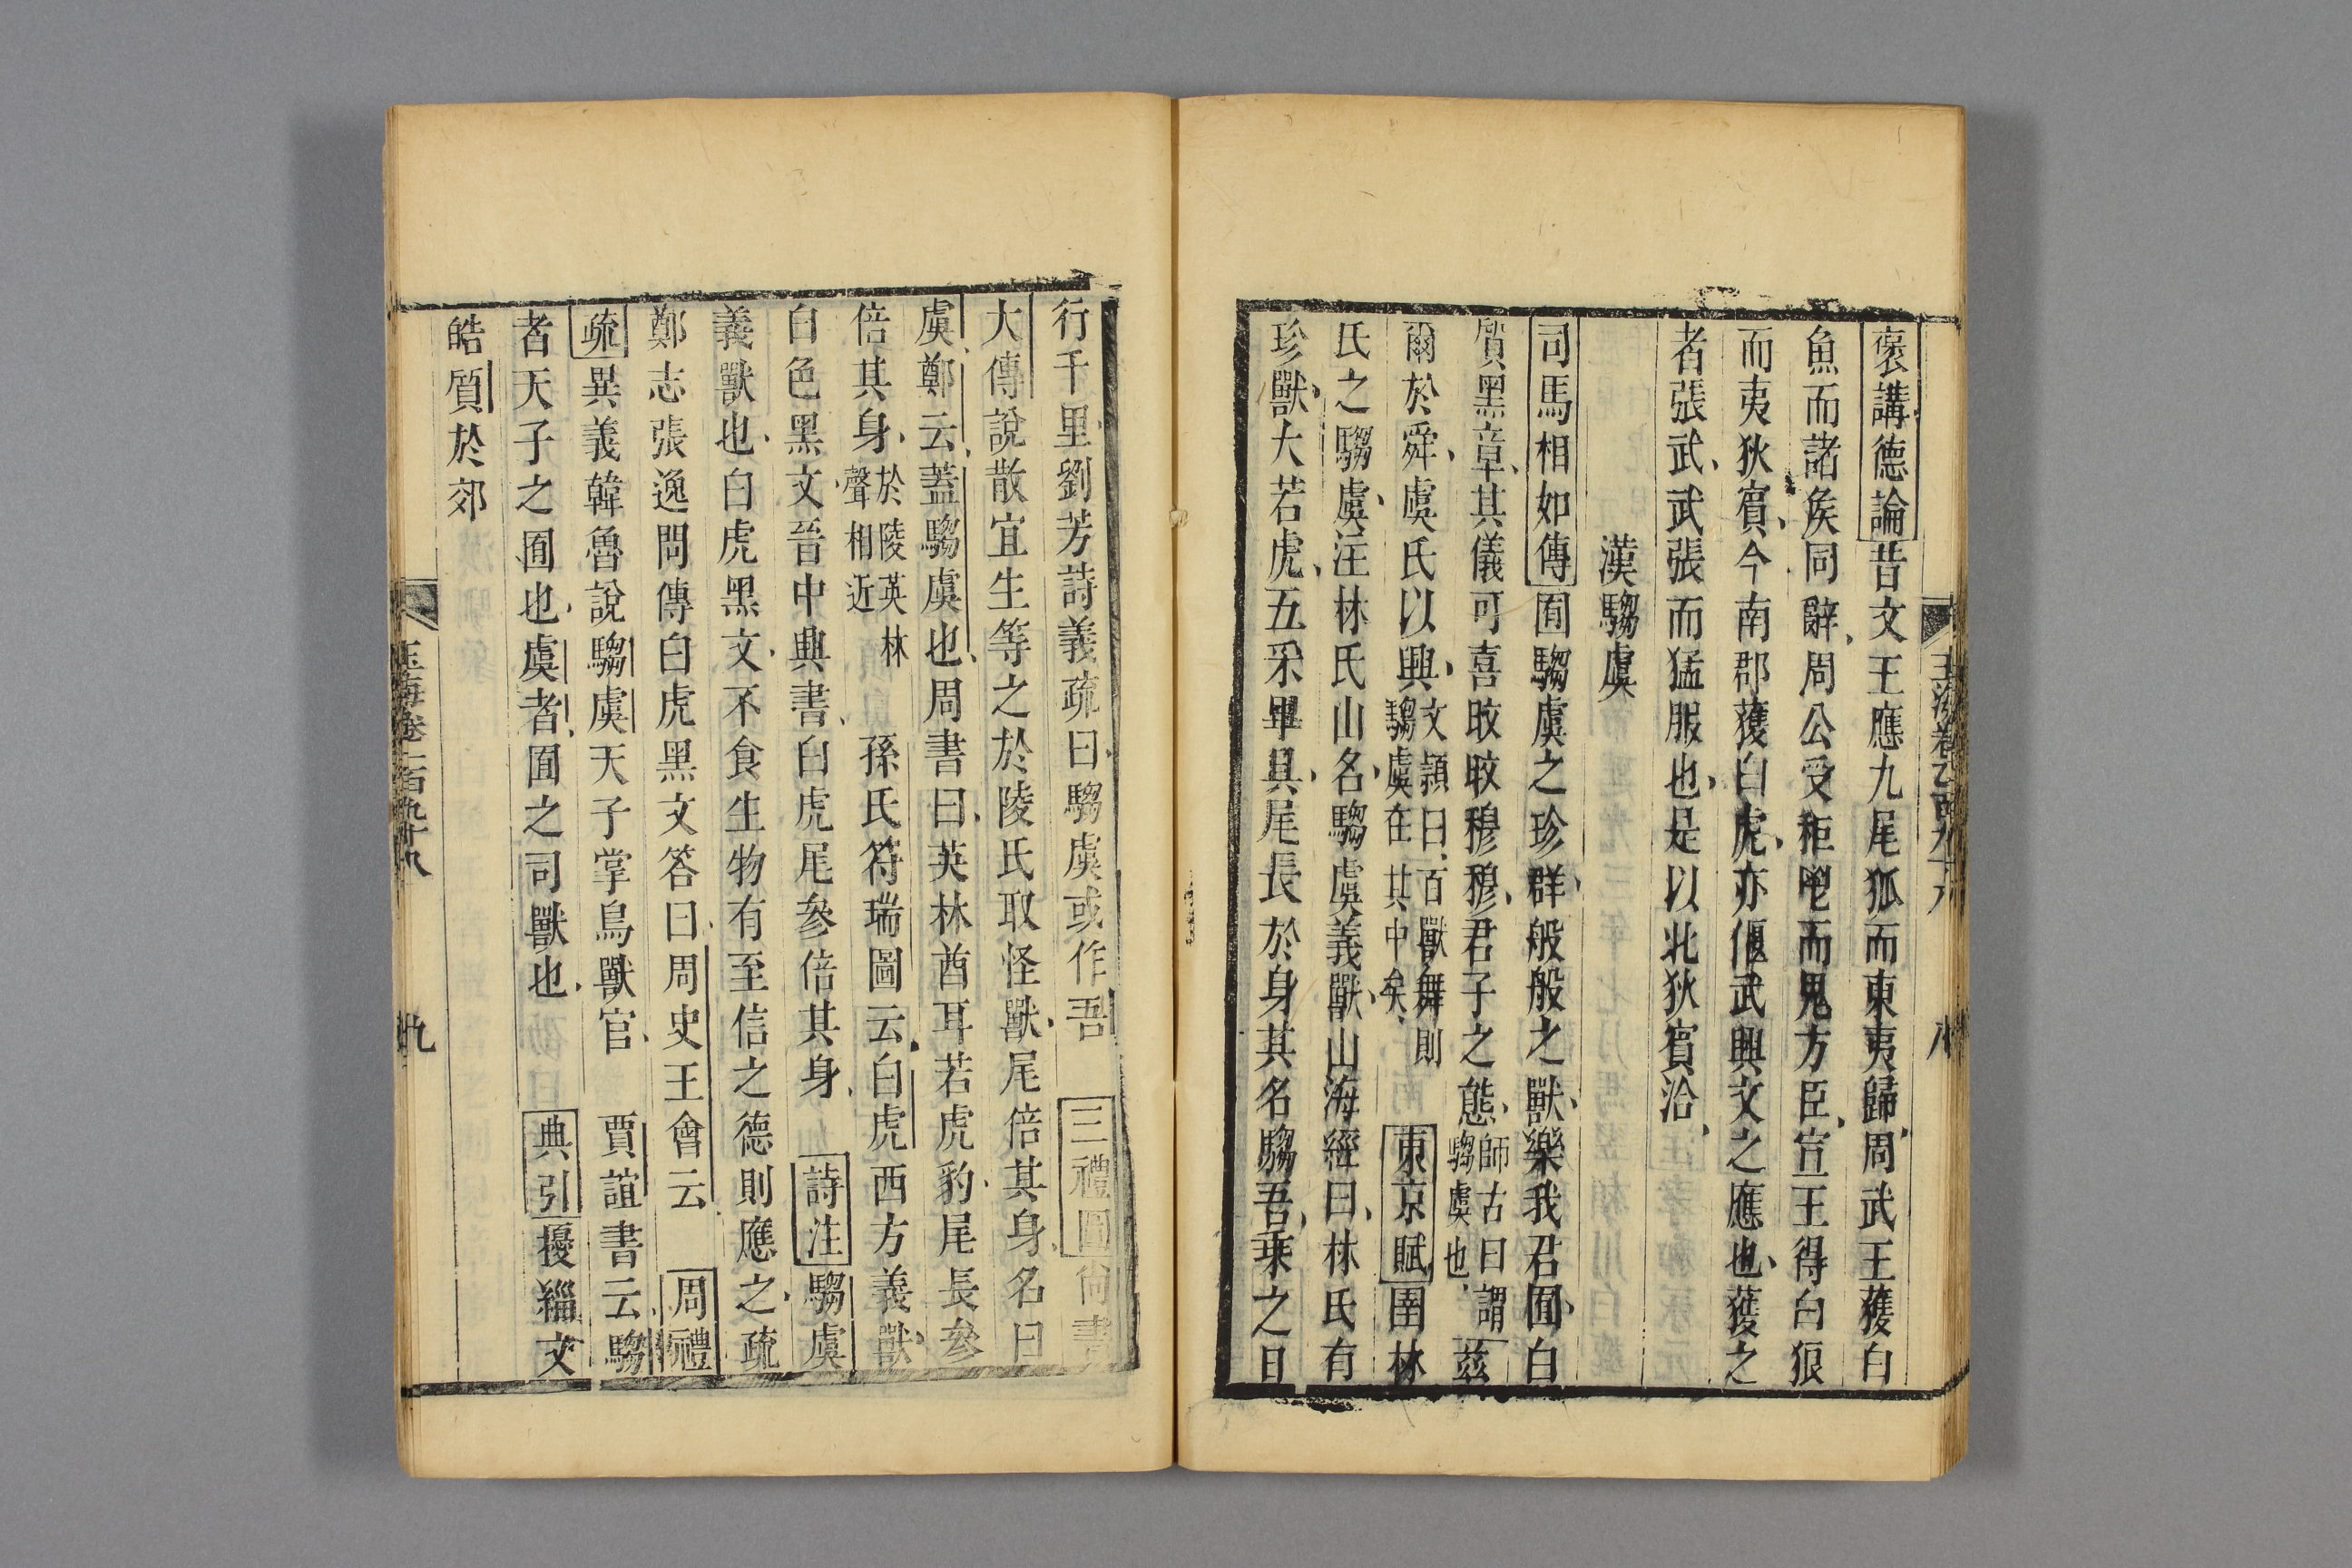 玉海卷一百九十八　八
褒講德論昔文王應九尾狐而東夷歸周武王獲白
魚而諸侯同辭周公受秬鬯而鬼方臣宣王得白狼
而夷狄賓今南郡獲白虎亦偃武興文之應也獲之
者張武武張而猛服也是以北狄賓洽
漢騶虞
司馬相如傳囿騶虞之珍群般般之獸樂我君囿白
質黑章其儀可喜旼旼穆穆君子之態師古曰謂騶虞也茲
爾於舜虞氏以興文頴曰百獸舞則騶虞在其中矣東京賦圉林
氏之騶虞注林氏山名騶虞義獸山海經曰林氏有
珍獸大若虎五采畢具尾長於身其名騶吾乘之日
行千里劉芳詩義疏曰騶虞或作吾　三禮圖尚書
大傳說散宜生等之於陵氏取怪獸尾倍其身名曰
虞鄭云蓋騶虞也周書曰英林酋耳若虎豹尾長參
倍其身於陵英林聲相近　孫氏符瑞圖云白虎西方義獸
白色黑文晉中興書白虎尾參倍其身　詩注騶虞
義獸也白虎黑文不食生物有至信之德則應之疏
鄭志張逸問傳曰虎黑文答曰周史王會云　周禮
疏異義韓魯說騶虞天子掌鳥獸官　賈誼書云騶
者天子之囿也虞者囿之司獸也　典引擾緇文
皓質於郊
玉海卷一百九十八　九